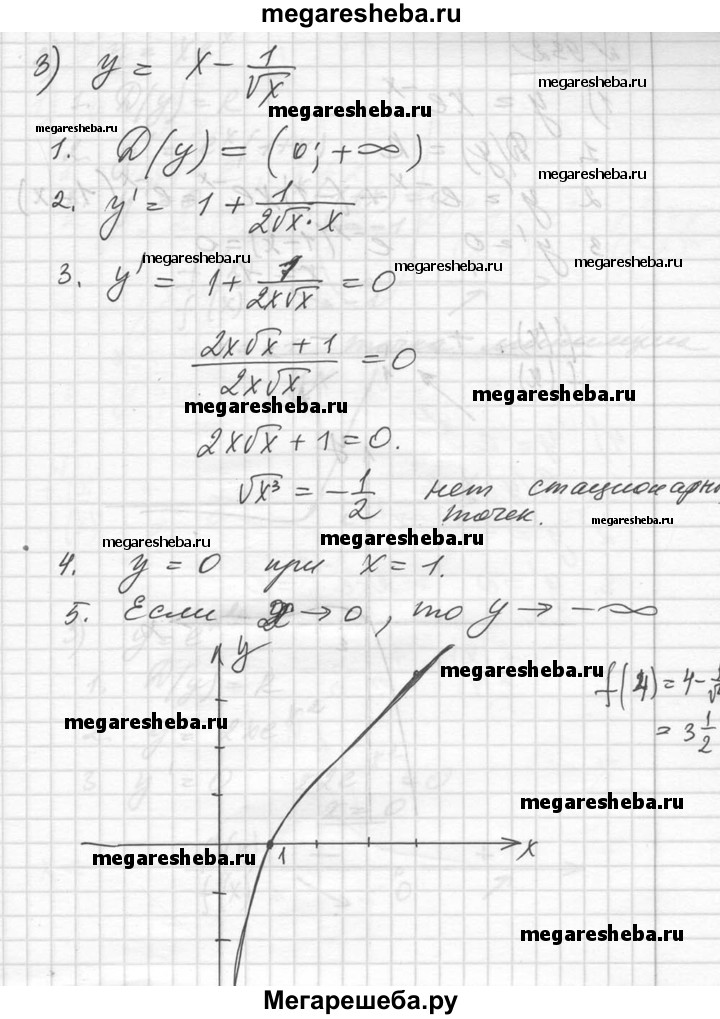 megaresheba.ru
3) y = x - 1/√x
megaresheba.ru
megaresheba.ru
megaresheba.ru
1. D(y) = (0; +∞)
megaresheba.ru
2. y' = 1 + 1/(2√x · x)
megaresheba.ru
megaresheba.ru
megaresheba.ru
3. y' = 1 + 1/(2x√x) = 0
(2x√x + 1)/(2x√x) = 0
megaresheba.ru
megaresheba.ru
2x√x + 1 = 0.
√x³ = -1/2 нет стационарн
точек.
megaresheba.ru
megaresheba.ru
megaresheba.ru
4. y = 0 при x = 1.
5. Если x → 0, то y → -∞
y
megaresheba.ru
f(4) = 4 - 1/√4
= 3 1/2
megaresheba.ru
megaresheba.ru
1
x
megaresheba.ru
megaresheba.ru
Мегарешеба.ру